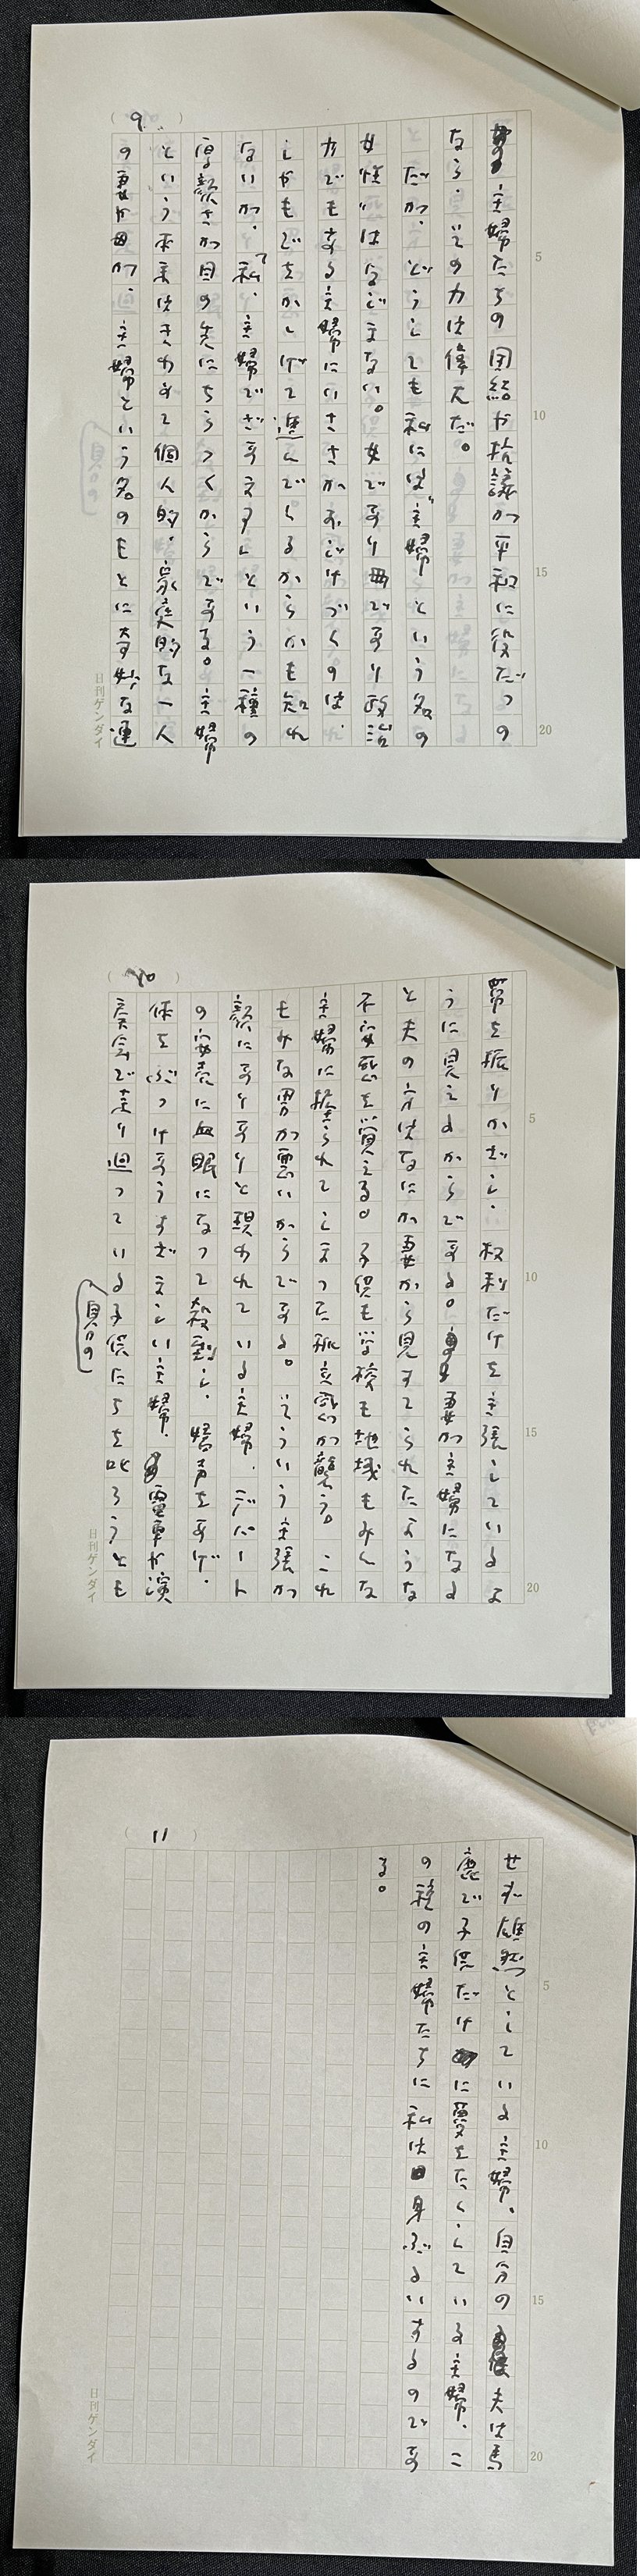 9
主婦たちの団結や抗議が平和に役だつの
なら、その力は偉大だ。
だが、どうしても私には"主婦"という名の
女性"はなじまない。女であり母であり政治
力でもある主婦にいささかおじけづくのは、
しゃもじをかしげて進んでくるからかも知れ
ないが、「私、主婦でざあます」という一種の
厚顔さが目の先にちらつくからである。主婦
という本来はきわめて個人的、家庭的な一人
の妻が母が、主婦という名のもとに奇妙な連
日刊ゲンダイ
5
10
15
20
10
帯を振りかざし、権利だけを主張しているよ
うに見えるからである。妻が主婦になる
と夫の方はなにか妻から見すてられたような
不安感を覚える。子供も学校も地域もみんな
主婦に握られてしまった孤立感が襲う。これ
もみな男が悪いからである。そういう主張が
顔にありありと現われている主婦、デパート
の安売に血眼になって殺到し、嬌声をあげ、
体をぶつけあうすざましい主婦、電車や演
奏会で走り廻っている子供たちを叱ろうとも
(員の)
日刊ゲンダイ
5
10
15
20
11
せず傲然としている主婦、自分の夫は馬
鹿で子供だけに夢をたくしている主婦、こ
の種の主婦たちに私は身ぶるいするのであ
る。
日刊ゲンダイ
5
10
15
20